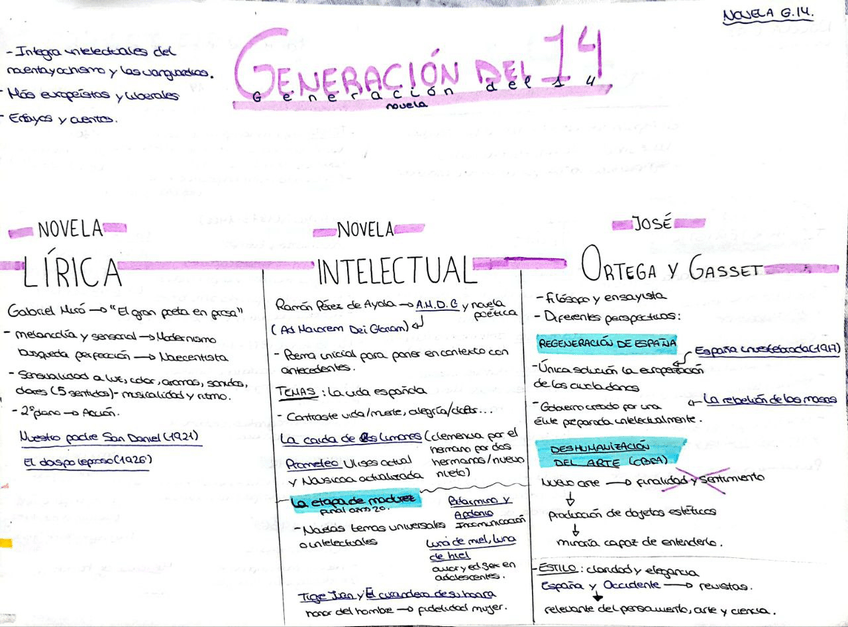 NOVELA G.14.
- Integra intelectuales del
noventayochismo y las vanguardias.
- Más europeístas y liberales
- Ensayos y cuentos.
GENERACIÓN DEL 14
Generación del 14
novela
NOVELA
LÍRICA
Gabriel Miró → "El gran poeta en prosa"
- melancolía y sensorial → Modernismo
búsqueda perfección → Novecentista
- Sensualidad a luz, color, aromas, sonidos,
olores (5 sentidos) - musicalidad y ritmo.
- 2º plano → Acción.
Nuestro padre San Daniel (1921)
El obispo leproso (1926)
NOVELA
INTELECTUAL
Ramón Pérez de Ayala → A.M.D.G y novela
poética
(Ad Maiorem Dei Gloriam)
- Poema inicial para poner en contexto con
antecedentes.
TEMAS: la vida española
- Contraste vida/muerte, alegría/dolor...
La caída de los Limones (clemencia por el
hermano por dos
hermanas/nuevo
nieto)
Prometeo Ulises actual
y Nausicaa actualizada
La etapa de madurez
final años 20.
- Novelas temas universales
o intelectuales
Belarmino y
Apolonio
Incomunicación
Luna de miel, luna
de hiel
amor y ed. sex en
adolescentes.
Tigre Juan y El curandero de su honra
honor del hombre → fidelidad mujer.
JOSÉ
ORTEGA Y GASSET
- filósofo y ensayista
- Diferentes perspectivas:
REGENERACIÓN DE ESPAÑA
España invertebrada (1917)
- Única solución la europeización
de los ciudadanos
- Gobierno creado por una
élite preparada intelectualmente.
La rebelión de las masas
DESHUMANIZACIÓN
DEL ARTE (OBRA)
Nuevo arte → finalidad y sentimiento
Producción de objetos estéticos
minoría capaz de entenderlo.
- ESTILO: claridad y elegancia
España y Occidente → revistas.
relevante del pensamiento, arte y ciencia.